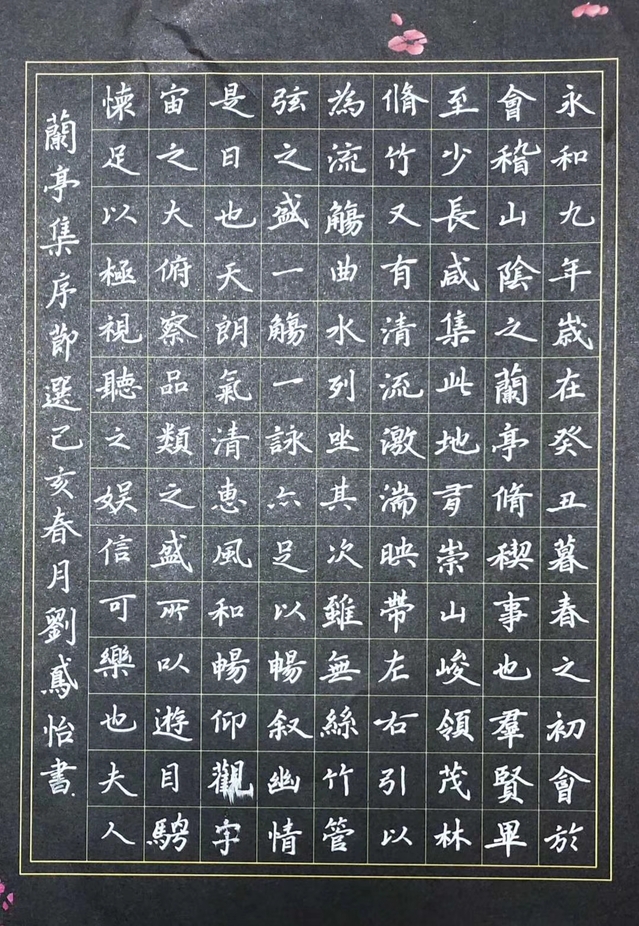 永和九年歲在癸丑暮春之初會於
會稽山陰之蘭亭脩稧事也羣賢畢
至少長咸集此地有崇山峻領茂林
脩竹又有清流激湍映帶左右引以
為流觴曲水列坐其次雖無絲竹管
弦之盛一觴一詠亦足以暢叙幽情
是日也天朗氣清惠風和暢仰觀宇
宙之大俯察品類之盛所以遊目騁
懐足以極視聽之娱信可樂也夫人
蘭亭集序節選己亥春月劉鳶怡書